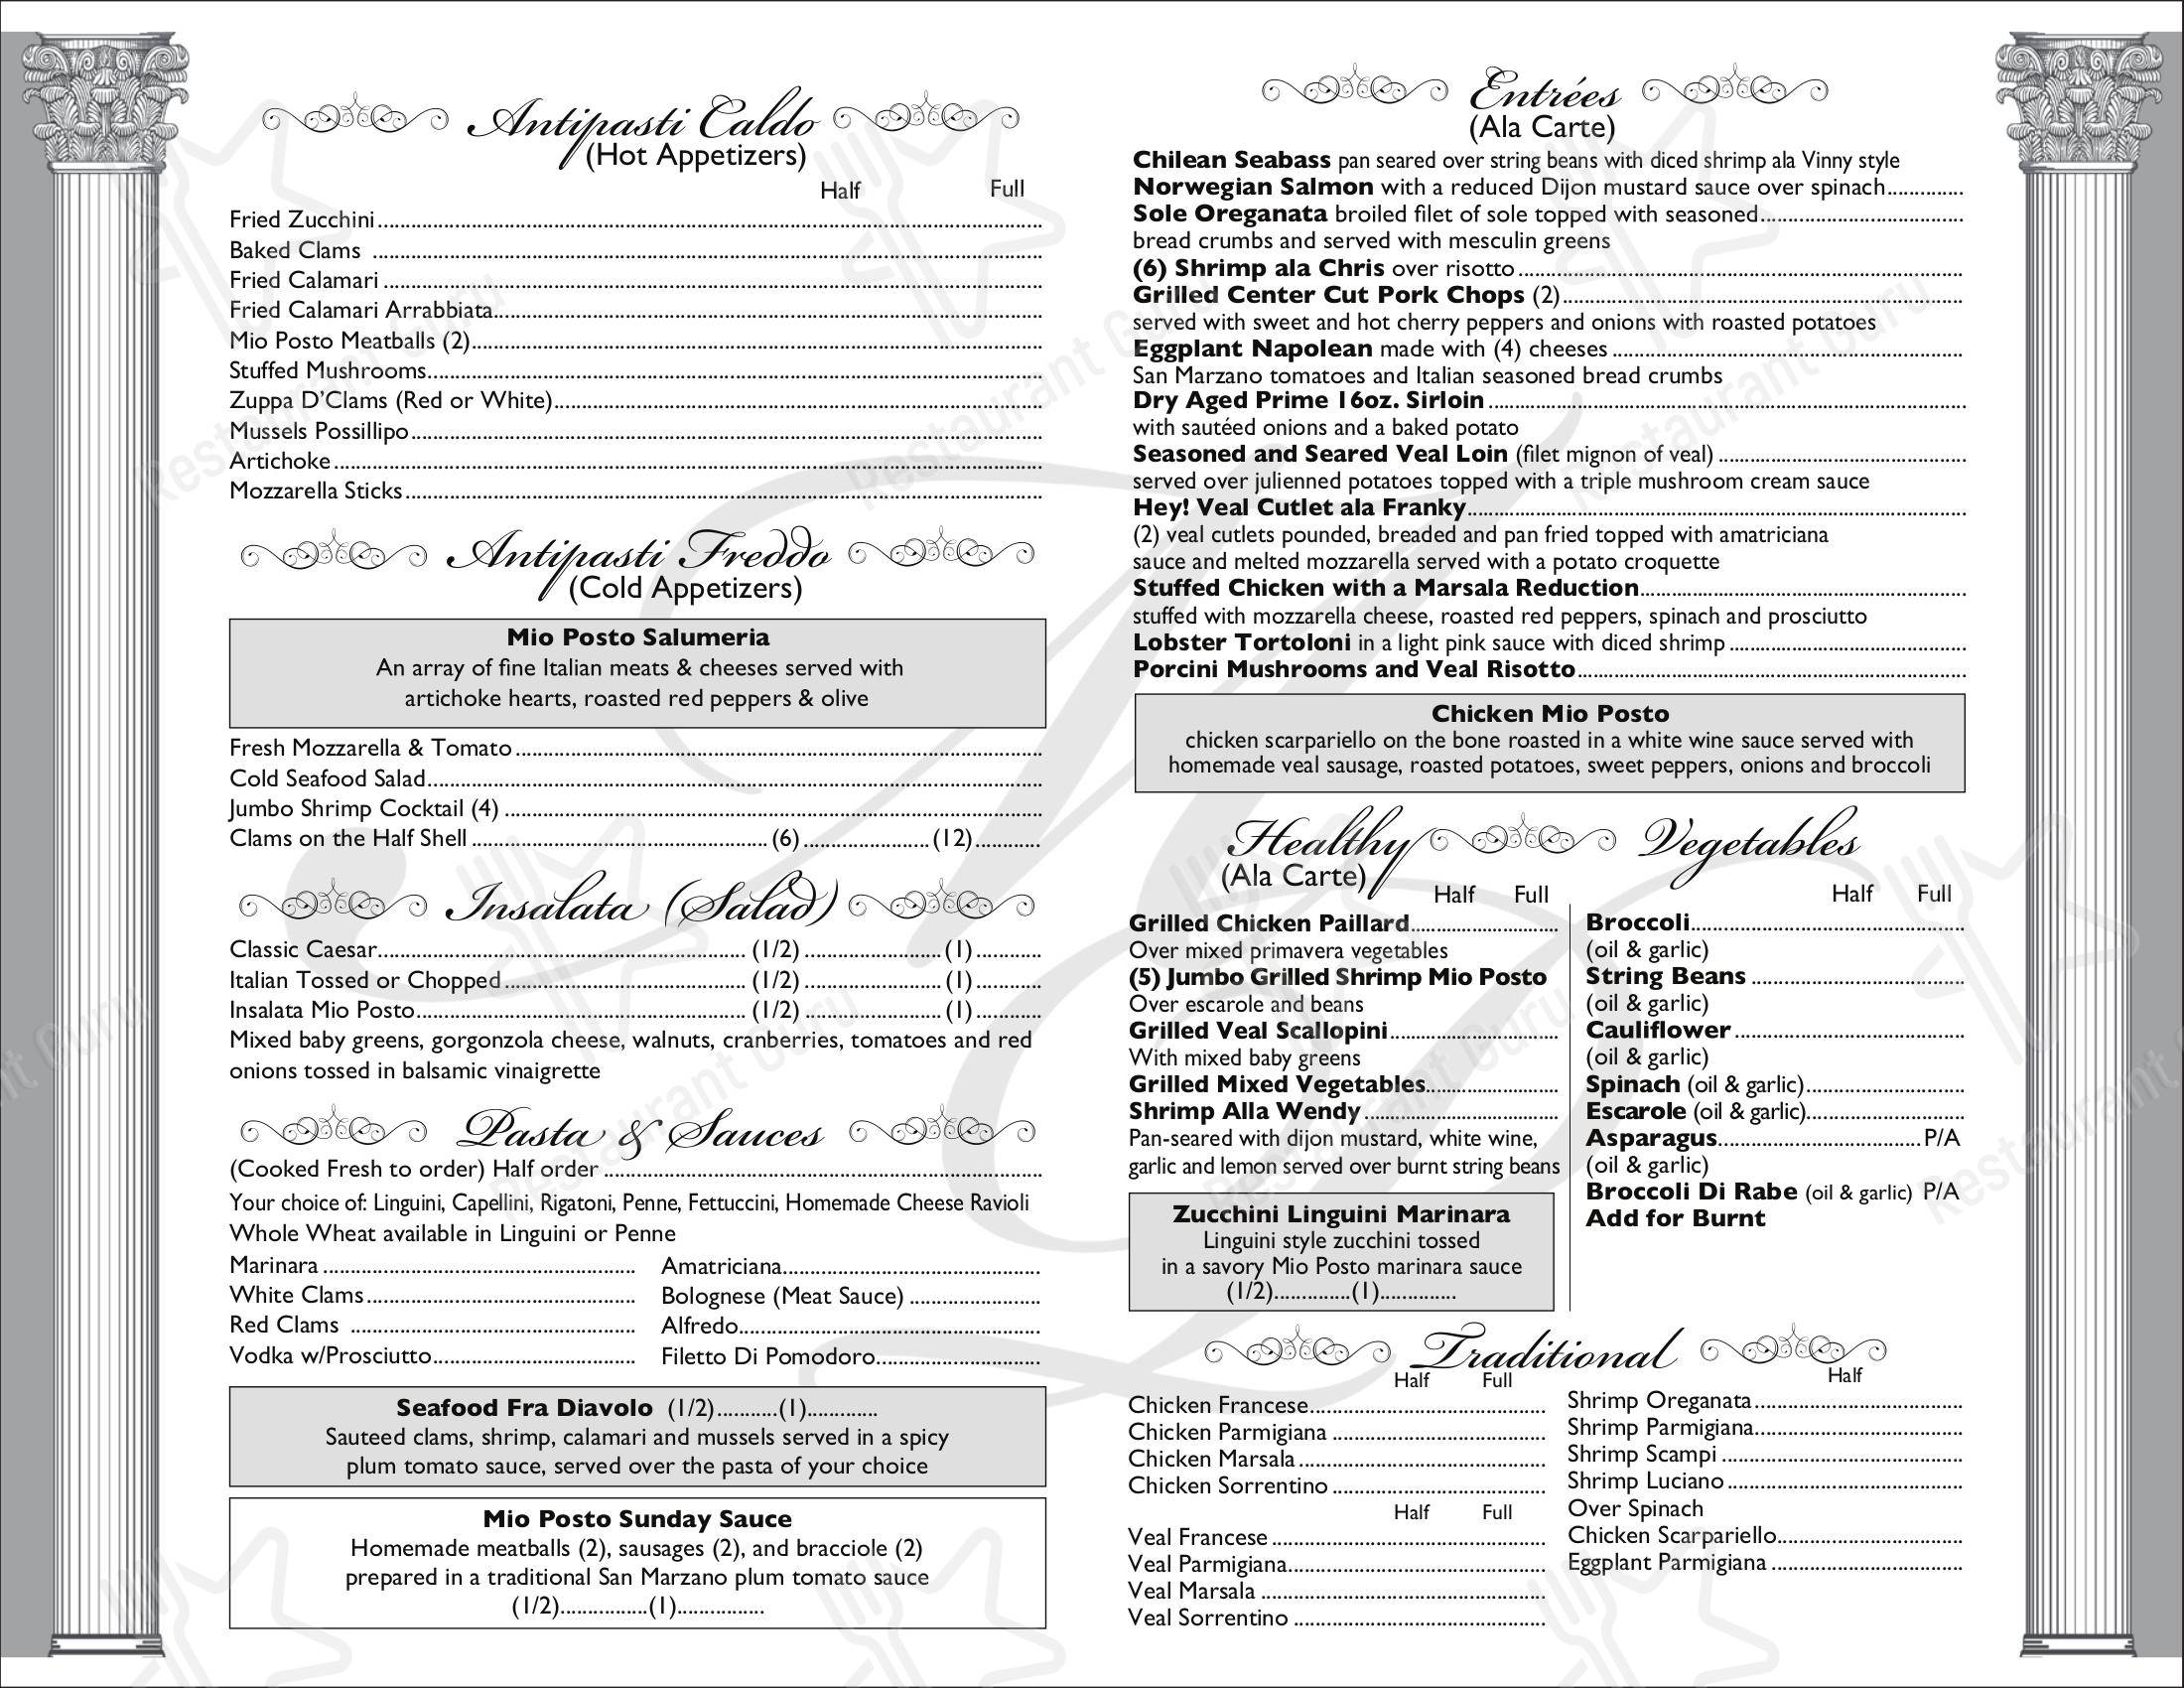 Antipasti Caldo
(Hot Appetizers)
Half Full
Fried Zucchini
Baked Clams
Fried Calamari
Fried Calamari Arrabbiata
Mio Posto Meatballs (2)
Stuffed Mushrooms
Zuppa D'Clams (Red or White)
Mussels Possillipo
Artichoke
Mozzarella Sticks
Antipasti Freddo
(Cold Appetizers)
Mio Posto Salumeria
An array of fine Italian meats & cheeses served with
artichoke hearts, roasted red peppers & olive
Fresh Mozzarella & Tomato
Cold Seafood Salad
Jumbo Shrimp Cocktail (4)
Clams on the Half Shell (6) (12)
Insalata (Salad)
Classic Caesar (1/2) (1)
Italian Tossed or Chopped (1/2) (1)
Insalata Mio Posto (1/2) (1)
Mixed baby greens, gorgonzola cheese, walnuts, cranberries, tomatoes and red
onions tossed in balsamic vinaigrette
Pasta & Sauces
(Cooked Fresh to order) Half order
Your choice of: Linguini, Capellini, Rigatoni, Penne, Fettuccini, Homemade Cheese Ravioli
Whole Wheat available in Linguini or Penne
Marinara
White Clams
Red Clams
Vodka w/Prosciutto
Amatriciana
Bolognese (Meat Sauce)
Alfredo
Filetto Di Pomodoro
Seafood Fra Diavolo (1/2)...........(1).............
Sauteed clams, shrimp, calamari and mussels served in a spicy
plum tomato sauce, served over the pasta of your choice
Mio Posto Sunday Sauce
Homemade meatballs (2), sausages (2), and bracciole (2)
prepared in a traditional San Marzano plum tomato sauce
(1/2)................(1)................
Entrées
(Ala Carte)
Chilean Seabass pan seared over string beans with diced shrimp ala Vinny style
Norwegian Salmon with a reduced Dijon mustard sauce over spinach
Sole Oreganata broiled filet of sole topped with seasoned
bread crumbs and served with mesculin greens
(6) Shrimp ala Chris over risotto
Grilled Center Cut Pork Chops (2)
served with sweet and hot cherry peppers and onions with roasted potatoes
Eggplant Napolean made with (4) cheeses
San Marzano tomatoes and Italian seasoned bread crumbs
Dry Aged Prime 16oz. Sirloin
with sautéed onions and a baked potato
Seasoned and Seared Veal Loin (filet mignon of veal)
served over julienned potatoes topped with a triple mushroom cream sauce
Hey! Veal Cutlet ala Franky
(2) veal cutlets pounded, breaded and pan fried topped with amatriciana
sauce and melted mozzarella served with a potato croquette
Stuffed Chicken with a Marsala Reduction
stuffed with mozzarella cheese, roasted red peppers, spinach and prosciutto
Lobster Tortoloni in a light pink sauce with diced shrimp
Porcini Mushrooms and Veal Risotto
Chicken Mio Posto
chicken scarpariello on the bone roasted in a white wine sauce served with
homemade veal sausage, roasted potatoes, sweet peppers, onions and broccoli
Healthy
(Ala Carte)
Half Full
Grilled Chicken Paillard
Over mixed primavera vegetables
(5) Jumbo Grilled Shrimp Mio Posto
Over escarole and beans
Grilled Veal Scallopini
With mixed baby greens
Grilled Mixed Vegetables
Shrimp Alla Wendy
Pan-seared with dijon mustard, white wine,
garlic and lemon served over burnt string beans
Zucchini Linguini Marinara
Linguini style zucchini tossed
in a savory Mio Posto marinara sauce
(1/2)..............(1)..............
Vegetables
Half Full
Broccoli
(oil & garlic)
String Beans
(oil & garlic)
Cauliflower
(oil & garlic)
Spinach (oil & garlic)
Escarole (oil & garlic)
Asparagus P/A
(oil & garlic)
Broccoli Di Rabe (oil & garlic) P/A
Add for Burnt
Traditional
Half Full
Chicken Francese
Chicken Parmigiana
Chicken Marsala
Chicken Sorrentino
Half Full
Veal Francese
Veal Parmigiana
Veal Marsala
Veal Sorrentino
Half
Shrimp Oreganata
Shrimp Parmigiana
Shrimp Scampi
Shrimp Luciano
Over Spinach
Chicken Scarpariello
Eggplant Parmigiana
Restaurant Guru